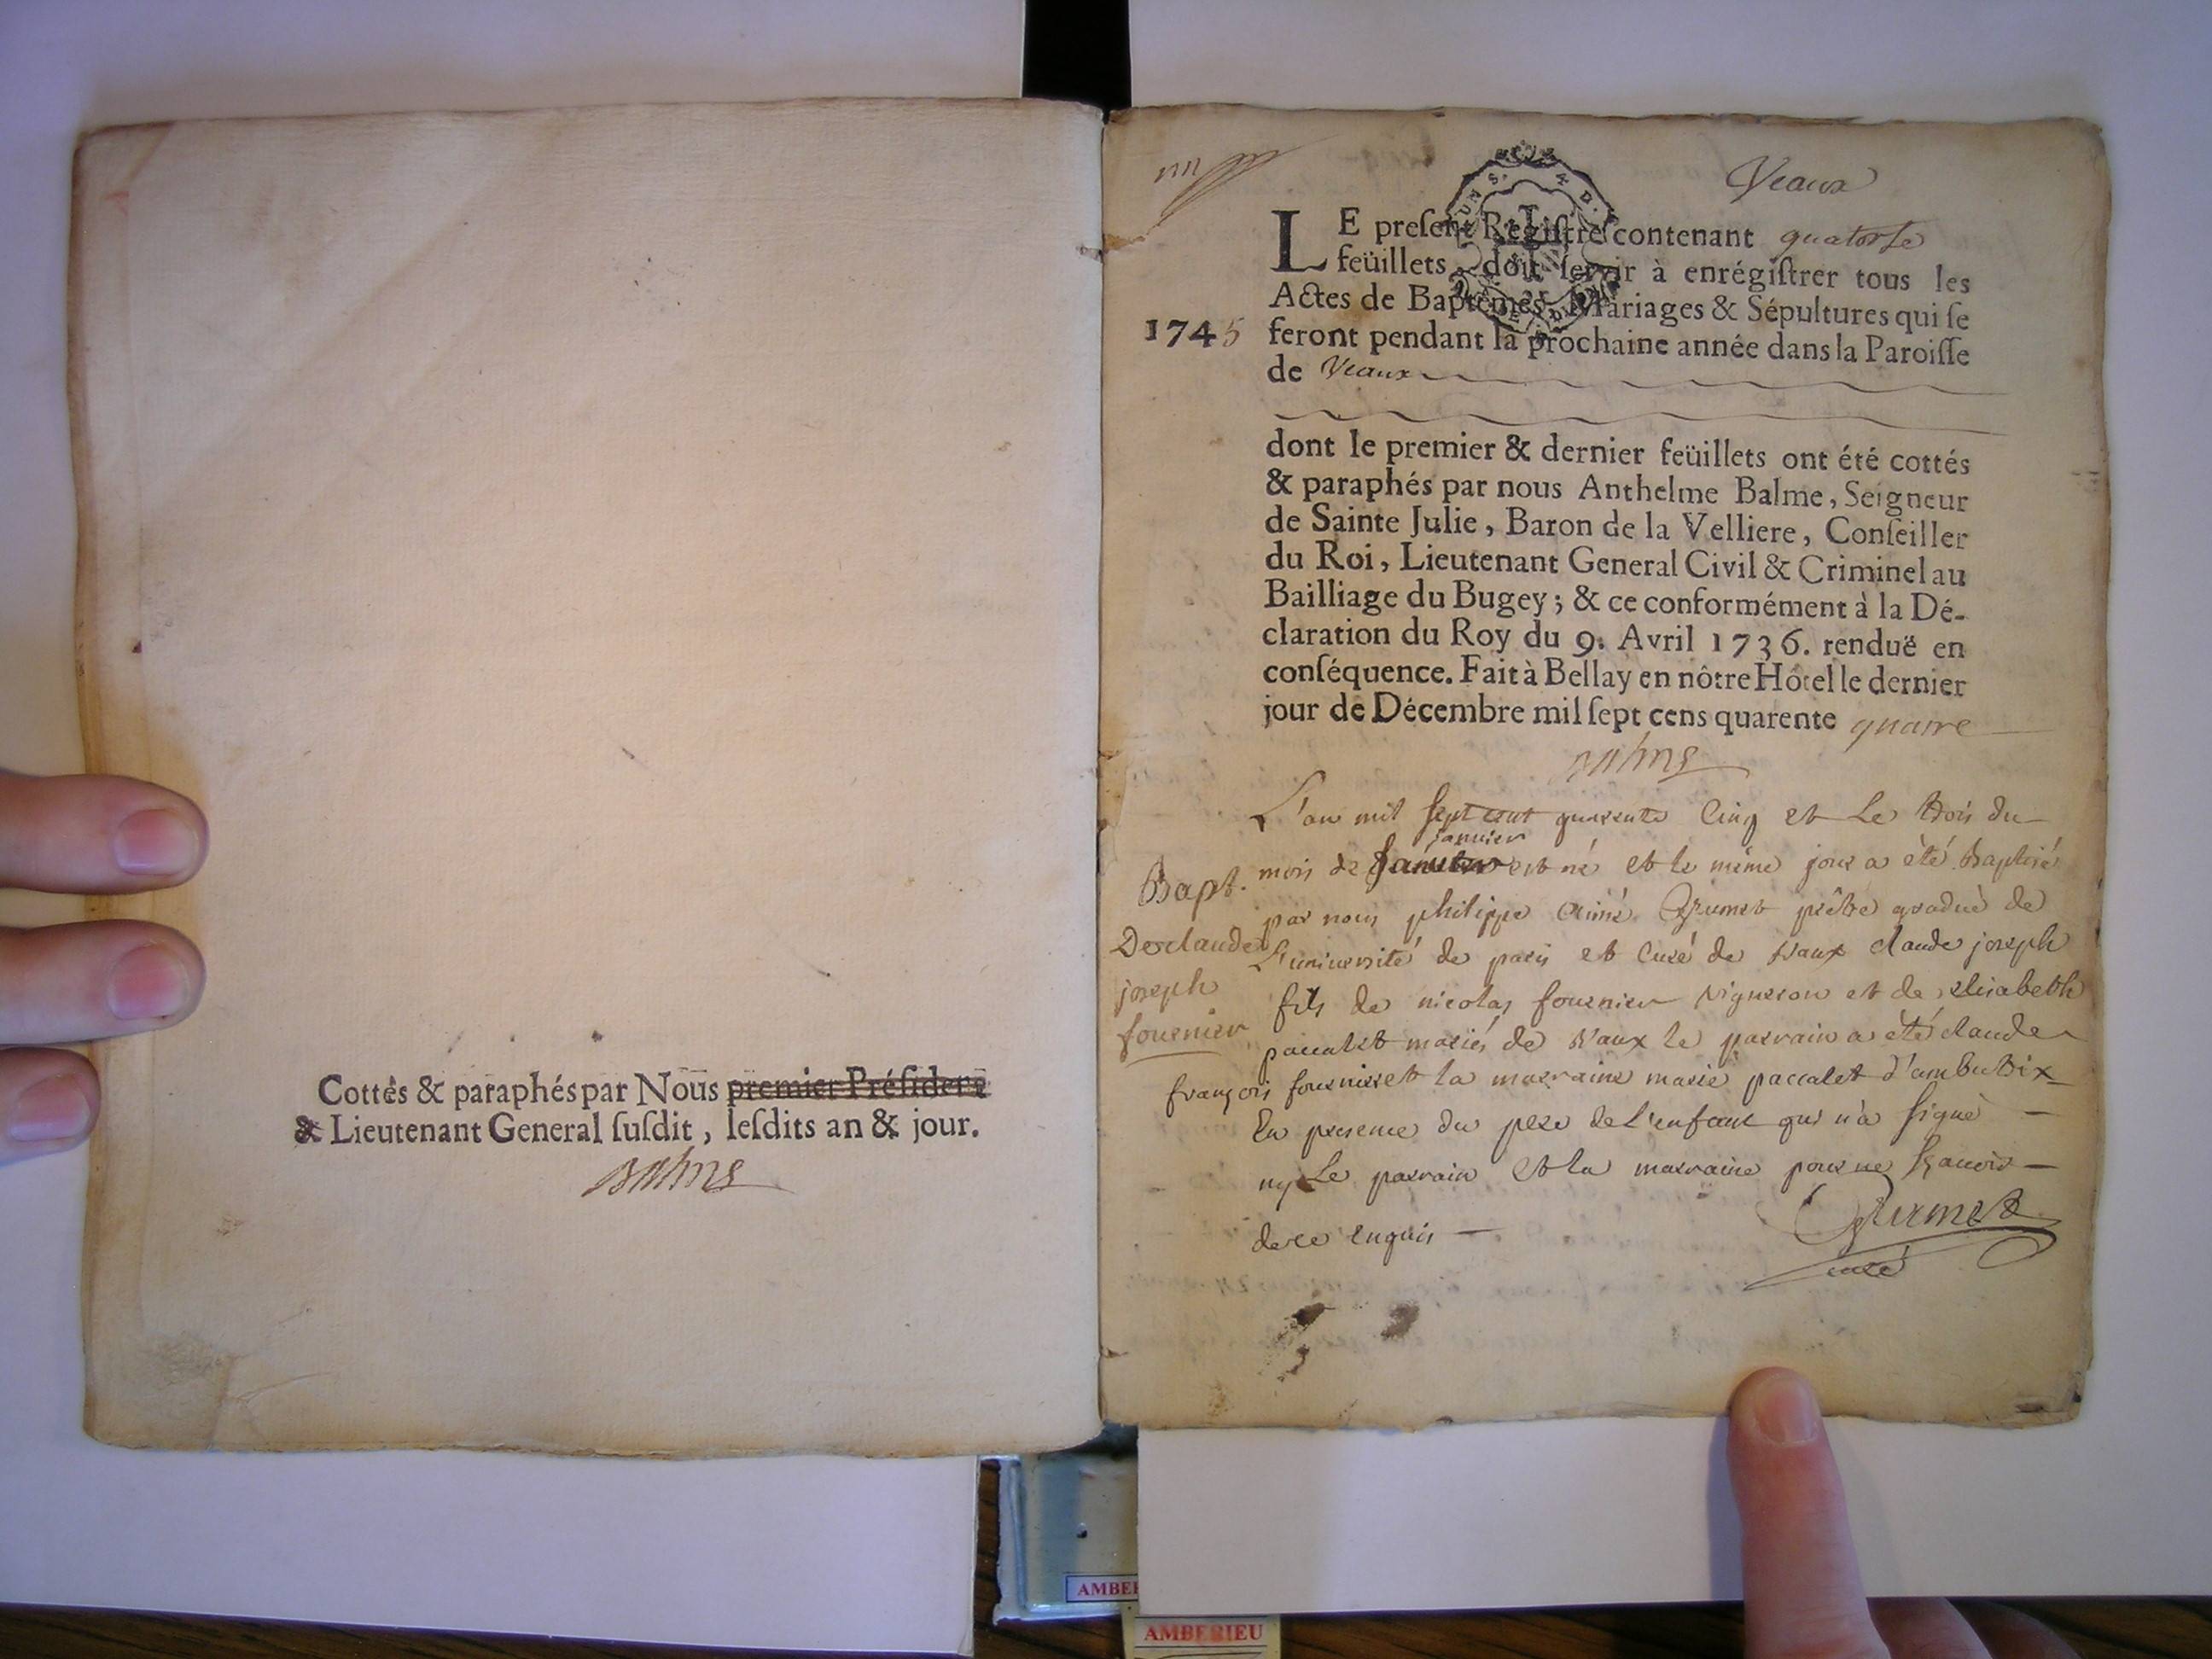 Cottés & paraphés par Nous premier Préſident
& Lieutenant General ſuſdit, leſdits an & jour.
Balme
Veaux
LE preſent Regiſtre contenant quatorſe
feüillets, doit ſervir à enrégiſtrer tous les
Actes de Baptêmes, Mariages & Sépultures qui ſe
1745 feront pendant la prochaine année dans la Paroiſſe
de Veaux
dont le premier & dernier feüillets ont été cottés
& paraphés par nous Anthelme Balme, Seigneur
de Sainte Julie, Baron de la Velliere, Conſeiller
du Roi, Lieutenant General Civil & Criminel au
Bailliage du Bugey; & ce conformément à la Dé-
claration du Roy du 9. Avril 1736. renduë en
conſéquence. Fait à Bellay en nôtre Hôtel le dernier
jour de Décembre mil ſept cens quarente quatre
Balme
L'an mil sept cent quarente cinq et le trois du
janvier
mois de est né et le même jour a été baptisé
Bapt.
par nous philippe Aimé Grumet prêtre gradué de
L'université de paris et curé de vaux claude joseph
De claude
joseph
fournier
fils de nicolas fournier vigneron et de elisabeth
paccalet mariés de vaux le parrain a été claude
françois fournier et la marraine marie paccalet d'ambutrix
En presence du pere de l'enfant qui n'a signé
ny le parrain et la marraine pour ne sçavoir
de ce enquis
Grumet
curé
AMBE
AMBERIEU